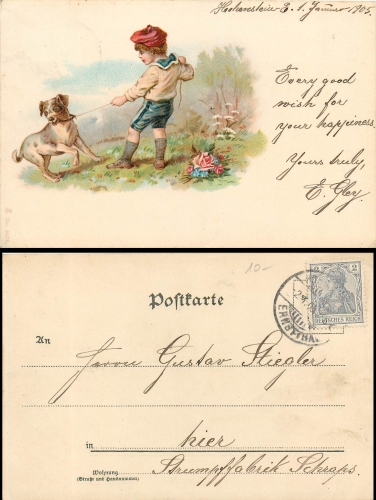 Hohenstein E. 1. Januar 1905.
Every good
wish for
your happiness.
Yours truly,
E. Gley
10-
Postkarte
2 2
DEUTSCHES REICH
An
Herrn Gustav Stiegler
in hier
Wohnung
(Straße und Hausnummer)
Strumpffabrik Schraps.